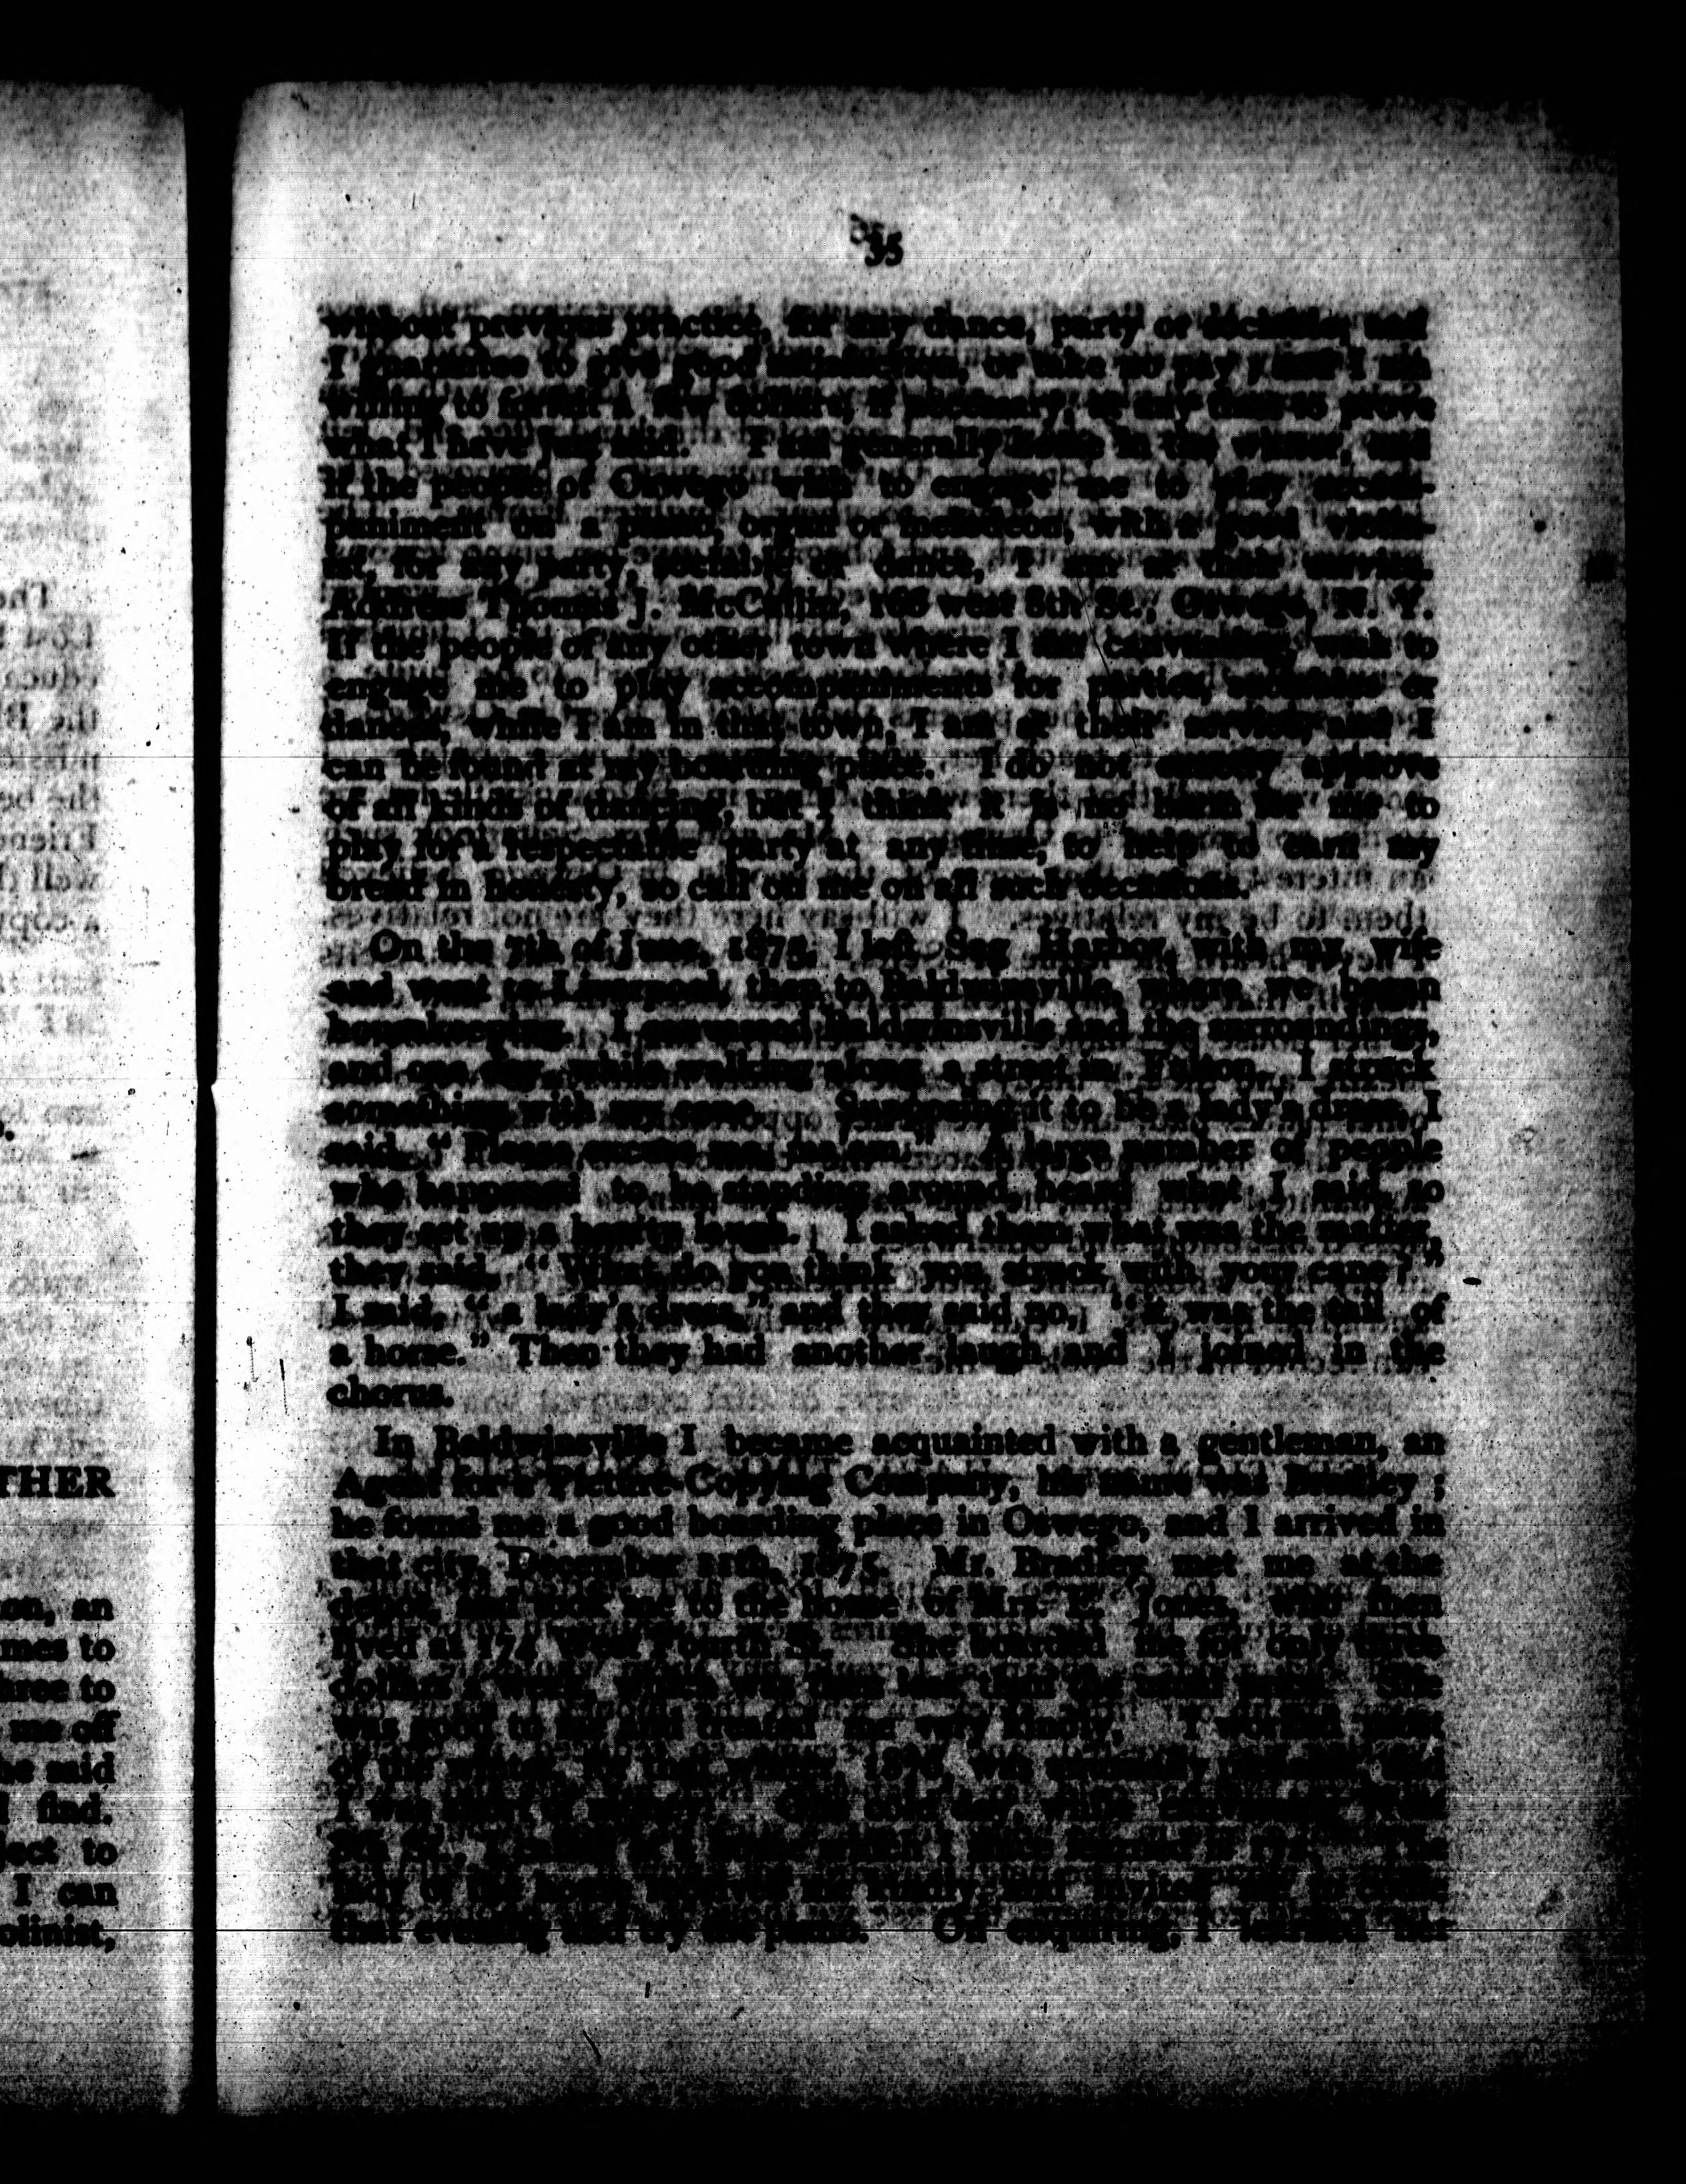 35
without previous practice, for any dance, party or sociable, and
I guarantee to give good satisfaction, or take no pay, and I am
willing to forfeit a few dollars, if necessary, at any time to prove
what I have just said. I am generally home in the winter, and
if the people of Oswego wish to engage me to play accom-
paniment on a piano, organ or melodeon, with a good violin-
ist, for any party, sociable or dance, I am at their service.
Address Thomas J. 166 west 8th St., Oswego, N. Y.
If the people of any other town where I am canvassing, wish to
engage me to play accompaniments for parties, sociables or
dances, while I am in that town, I am at their service, and I
can be found at my boarding place. I do not exactly approve
of all kinds of dancing, but I think it is no harm for me to
play for a respectable party at any time, to help to earn my
bread in honesty, so call on me on all such occasions.
On the 7th of June, 1875, I left Sag Harbor, with my wife
and went to Liverpool, then to Baldwinsville, where we began
housekeeping. I canvassed Baldwinsville and the surroundings,
and one day, while walking along a street in Fulton, I struck
something with my cane. Supposing it to be a lady's dress, I
said, " Please excuse me, A large number of people
who happened to be standing around, heard what I said, so
they set up a hearty laugh. I asked them what was the matter,
they said, " What do you think you struck with your cane? "
I said, " a lady's dress," and they said no, " it was the tail of
a horse." Then they had another laugh and I joined in the
chorus.
In Baldwinsville I became acquainted with a gentleman, an
Agent for a Picture-Copying Company, his name was Bradley ;
he found me a good boarding place in Oswego, and I arrived in
that city, December 11th, 1875. Mr. Bradley met me at the
depot, and took me to the house of Mrs. E. Jones, who then
lived at 174 West Fourth St. She boarded me for only three
dollars a week, which was then less than the usual price. She
was good to me and treated me very kindly. I worked most
of the winter, 1876, was
I was One cold day, while
8th St., I house which I since learned is
lady of the house received me kindly, and invited me to come
that evening and try the piano. On enquiring, I learned her
THER
on, an
mes to
hree to
me off
he said
find.
ject to
I can
olinist,